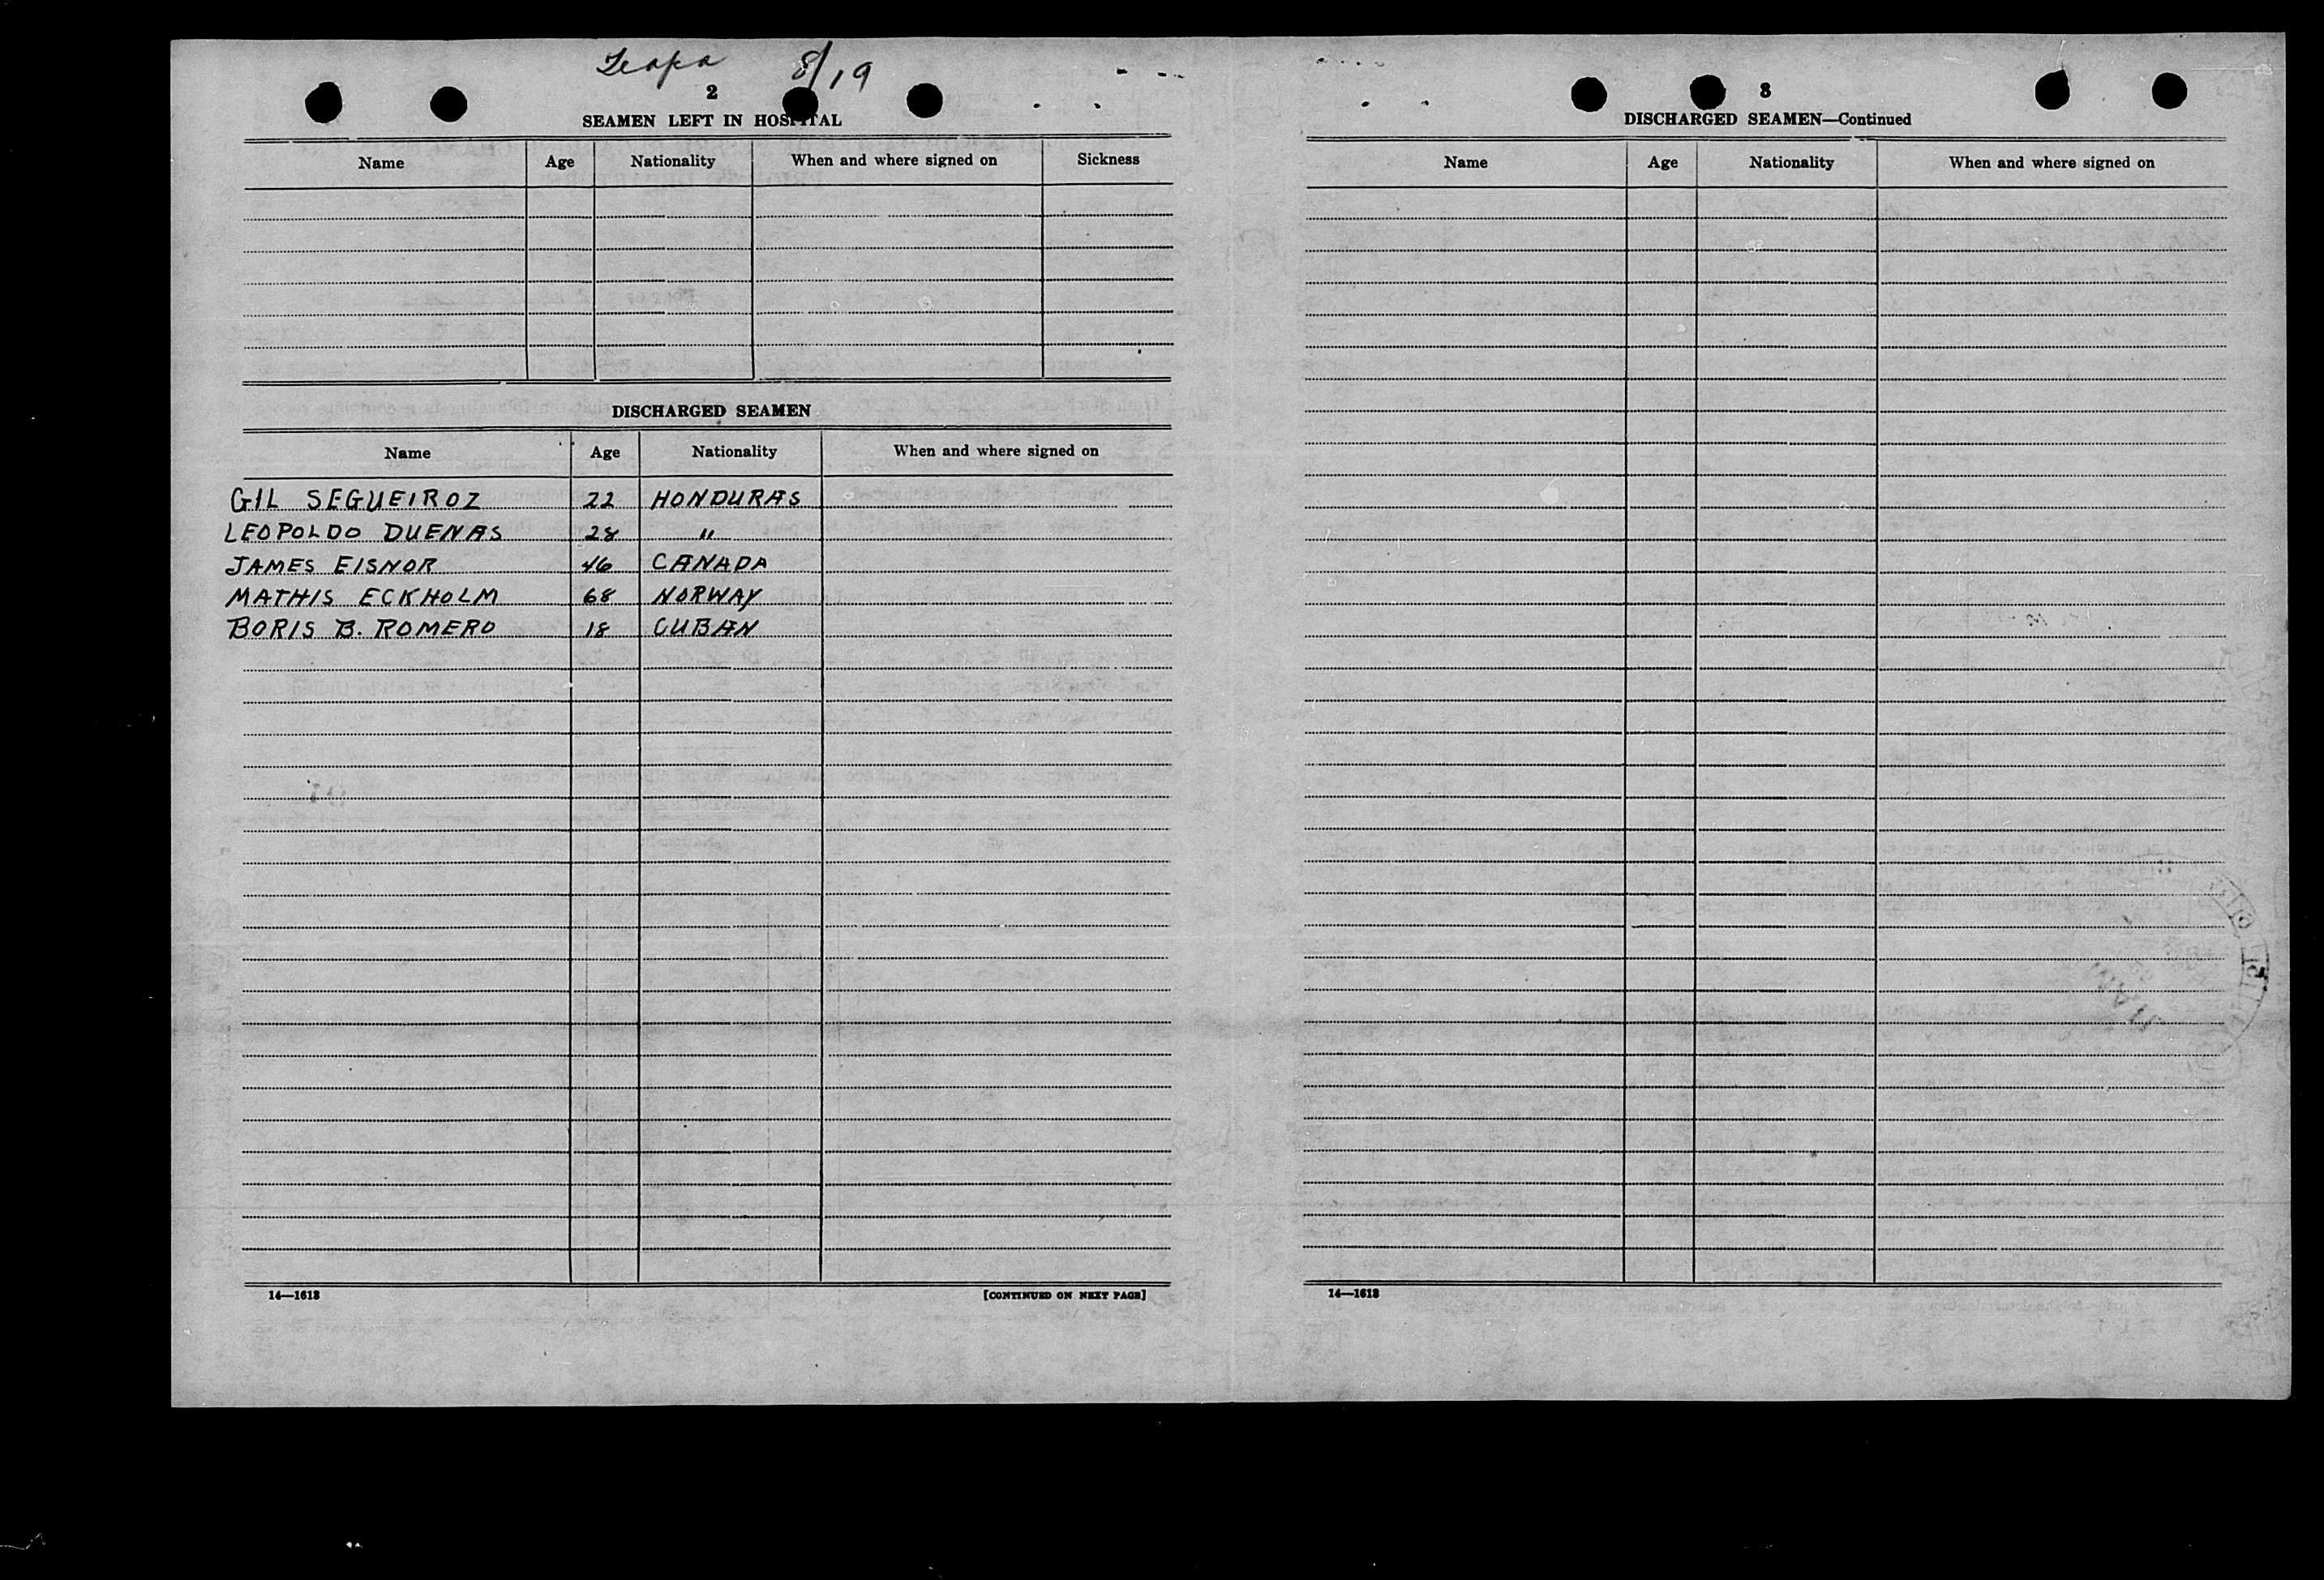 8/19
2
SEAMEN LEFT IN HOSPITAL
Name Age Nationality When and where signed on Sickness
DISCHARGED SEAMEN
Name Age Nationality When and where signed on
GIL SEGUEIROZ 22 HONDURAS
LEOPOLDO DUENAS 28 "
JAMES EISNOR 46 CANADA
MATHIS ECKHOLM 68 NORWAY
BORIS B. ROMERO 18 CUBAN
14—1613 [CONTINUED ON NEXT PAGE]
3
DISCHARGED SEAMEN—Continued
Name Age Nationality When and where signed on
14—1613